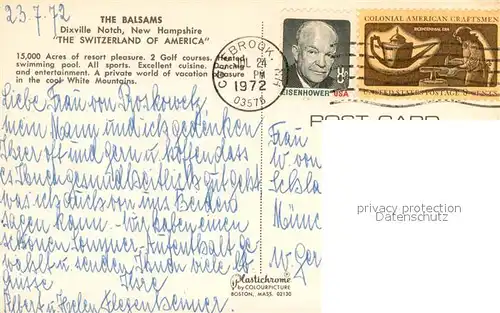 23.7.72
THE BALSAMS
Dixville Notch, New Hampshire
"THE SWITZERLAND OF AMERICA"
15,000 Acres of resort pleasure. 2 Golf courses. Heated
swimming pool. All sports. Excellent cuisine. Dancing
and entertainment. A private world of vacation pleasure
in the cool White Mountains.
COLEBROOK,
JUL 24
PM
1972
03576
EISENHOWER USA
8c
COLONIAL AMERICAN CRAFTSMEN
BICENTENNIAL ERA
UNITED STATES POSTAGE 8 CENTS
POST CARD
Liebe Frau von
mein Mann und ich gedenken
Ihrer oft und gern u. hoffen dass
es Ihnen gesundheitlich gut geht
was ich auch von uns Beiden
sagen kann. Wir haben einen
schönen Sommer-Aufenthalt ge-
wählt u. senden Ihnen viele lb.
Grüsse Ihre
Albert u. Helen
Frau
W. von
Münc
W. Ger
privacy protection
Datenschutz
Plastichrome
BY COLOURPICTURE
BOSTON, MASS. 02130